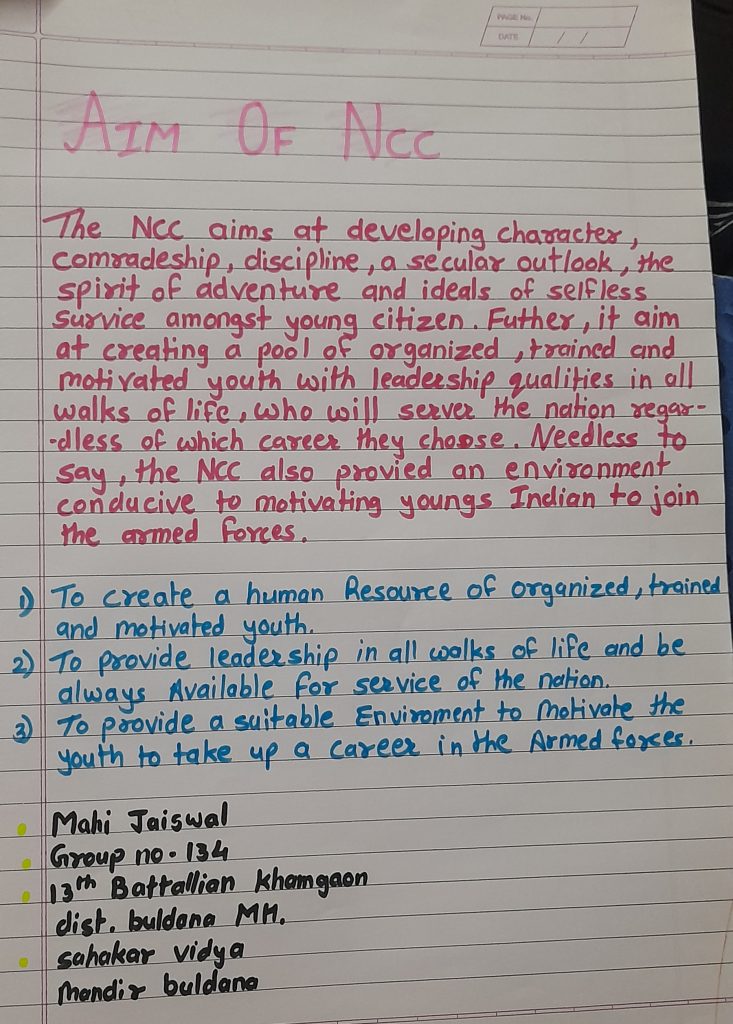 PAGE No.
DATE / /
AIM OF NCC
The NCC aims at developing character,
comradeship, discipline, a secular outlook, the
spirit of adventure and ideals of selfless
survice amongst young citizen. Futher, it aim
at creating a pool of organized, trained and
motivated youth with leadership qualities in all
walks of life, who will server the nation regar-
-dless of which career they choose. Needless to
say, the NCC also provied an environment
conducive to motivating youngs Indian to join
the armed forces.
1) To create a human Resource of organized, trained
and motivated youth.
2) To provide leadership in all walks of life and be
always Available for service of the nation.
3) To provide a suitable Enviroment to Motivate the
youth to take up a career in the Armed forces.
• Mahi Jaiswal
• Group no. 134
• 13th Battallian Khamgaon
dist. buldana MH.
• sahakar vidya
Mandir buldana